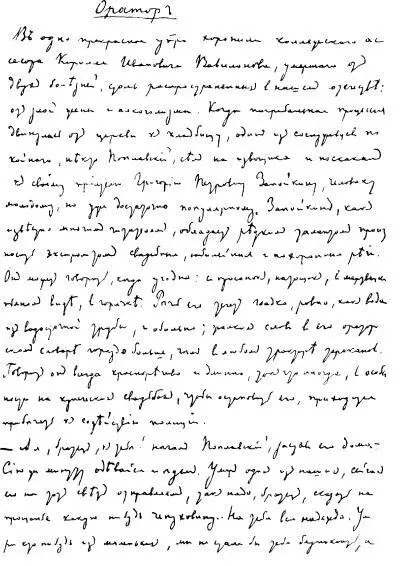 Ораторъ
Въ одно прекрасное утро хоронили коллежскаго ас-
сесора Кирилла Ивановича Вавилонова, умершаго отъ
двухъ болѣзней, столь распространенныхъ въ нашемъ отечествѣ:
отъ злой жены и алкоголизма. Когда погребальная процессія
двинулась отъ церкви къ кладбищу, одинъ изъ сослуживцевъ по-
койнаго, нѣкто Поплавскій, сѣлъ на извозчика и поскакалъ
къ своему пріятелю Григорію Петровичу Запойкину, человѣку
молодому, но уже достаточно популярному. Запойкинъ, какъ
извѣстно многимъ читателямъ, обладаетъ рѣдкимъ талантомъ произ-
носить экспромтомъ свадебныя, юбилейныя и похоронныя рѣчи.
Онъ можетъ говорить, когда угодно: спросонокъ, натощакъ, въ мертвецки
пьяномъ видѣ, въ горячкѣ. Рѣчь его течетъ гладко, ровно, какъ вода
изъ водосточной трубы, и обильно; жалкихъ словъ въ его оратор-
скомъ словарѣ гораздо больше, чѣмъ въ любомъ трактирѣ таракановъ.
Говоритъ онъ всегда краснорѣчиво и длинно, такъ что иногда, въ особен-
ности на купеческихъ свадьбахъ, чтобы остановить его, приходится
прибѣгать къ содѣйствію полиціи.
— А я, братецъ, къ тебѣ! началъ Поплавскій, заставъ его дома. —
Сію же минуту одѣвайся и ѣдемъ. Умеръ одинъ изъ нашихъ, сейчасъ
его на тотъ свѣтъ отправляемъ, такъ надо, братецъ, сказать на
прощанье какую нибудь чепуховину.. На тебя вся надежда. Ум-
ри кто нибудь изъ маленькихъ, мы не стали бы тебя безпокоить, а